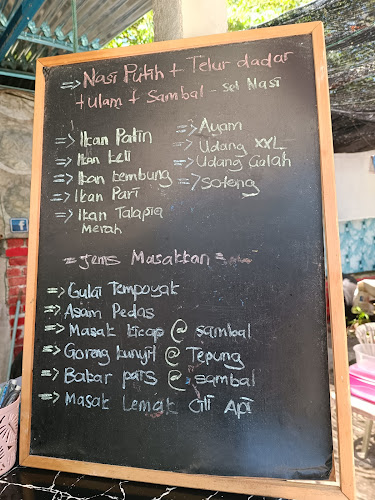 => Nasi Putih + Telur dadar
+ ulam + Sambal - set Nasi
=> Ikan Patin
=> Ikan keli
=> Ikan kembung
=> Ikan Pari
=> Ikan Talapia
Merah
=> Ayam
=> Udang XXL
=> Udang Galah
=> Soteng
= Jenis Masakkan =
=> Gulai Tempoyak
=> Asam Pedas
=> Masak kicap @ Sambal
=> Goreng kunyit @ Tepung
=> Bakar pais @ sambal
=> Masak Lemak Cili Api